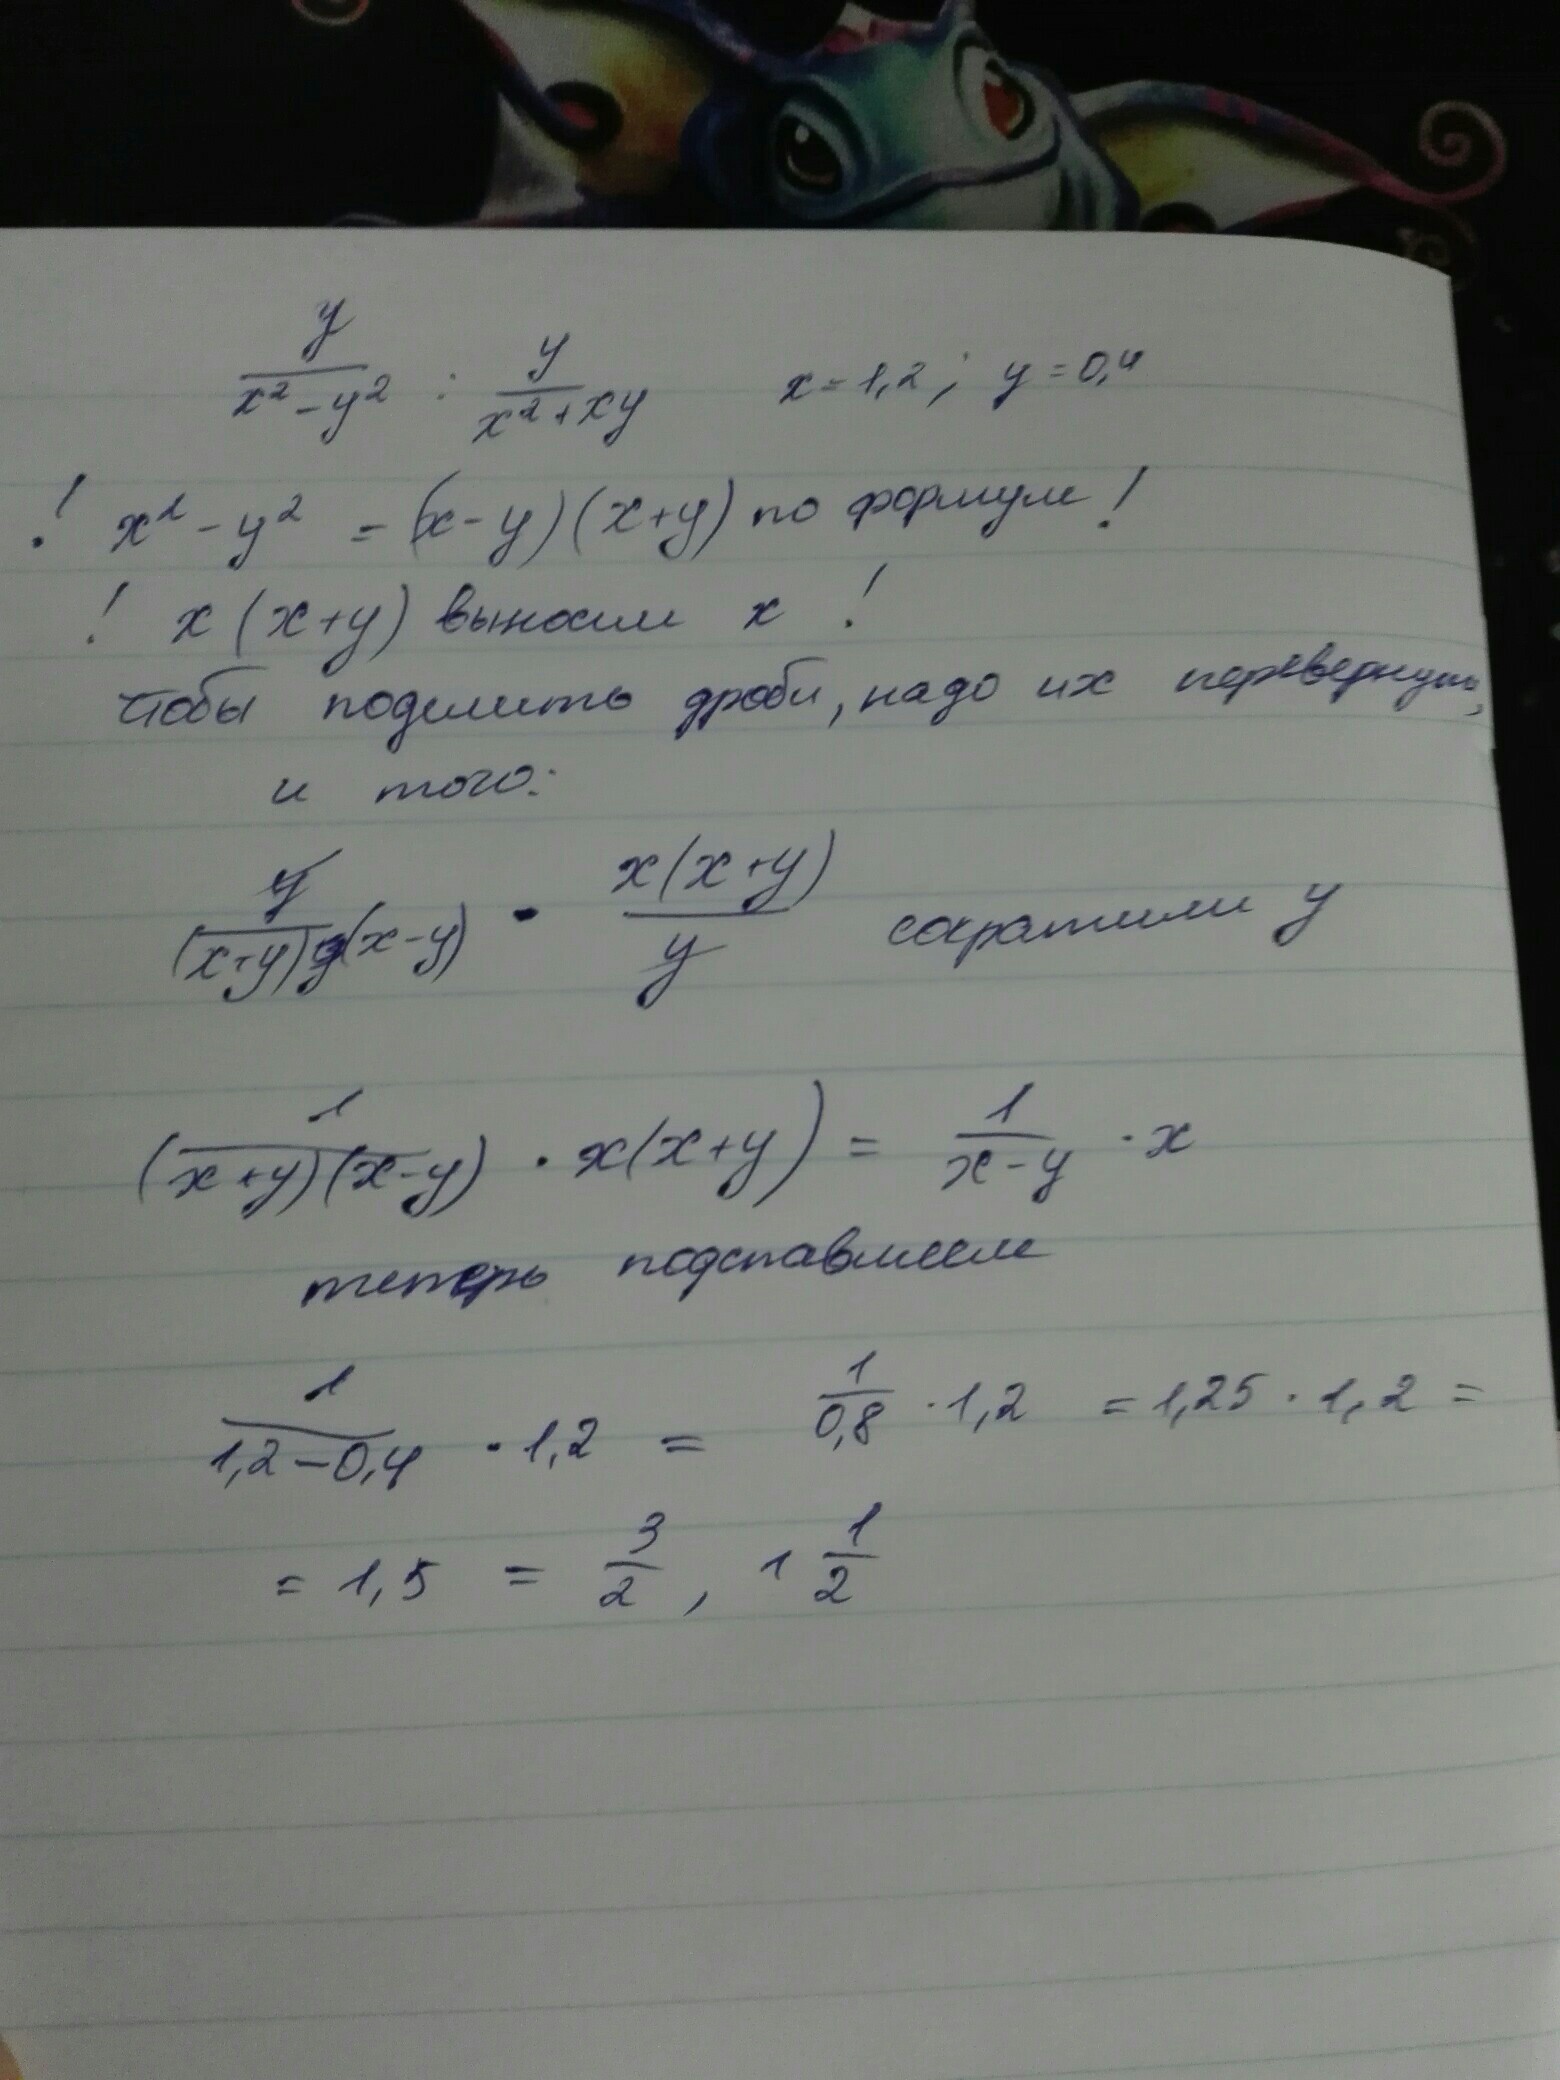 y/(x² - y²) : y/(x² + xy)   x = 1,2 ; y = 0,4
! x² - y² = (x - y)(x + y) по формуле !
! x (x + y) выносим x !
Чтобы поделить дроби, надо их перевернуть,
и того:
y/((x+y)(x-y)) · x(x+y)/y сократили y
(1/((x+y)(x-y)) · x(x+y)) = 1/(x-y) · x
теперь подставляем
1/(1,2-0,4) · 1,2 = 1/0,8 · 1,2 = 1,25 · 1,2 =
= 1,5 = 3/2 , 1 1/2